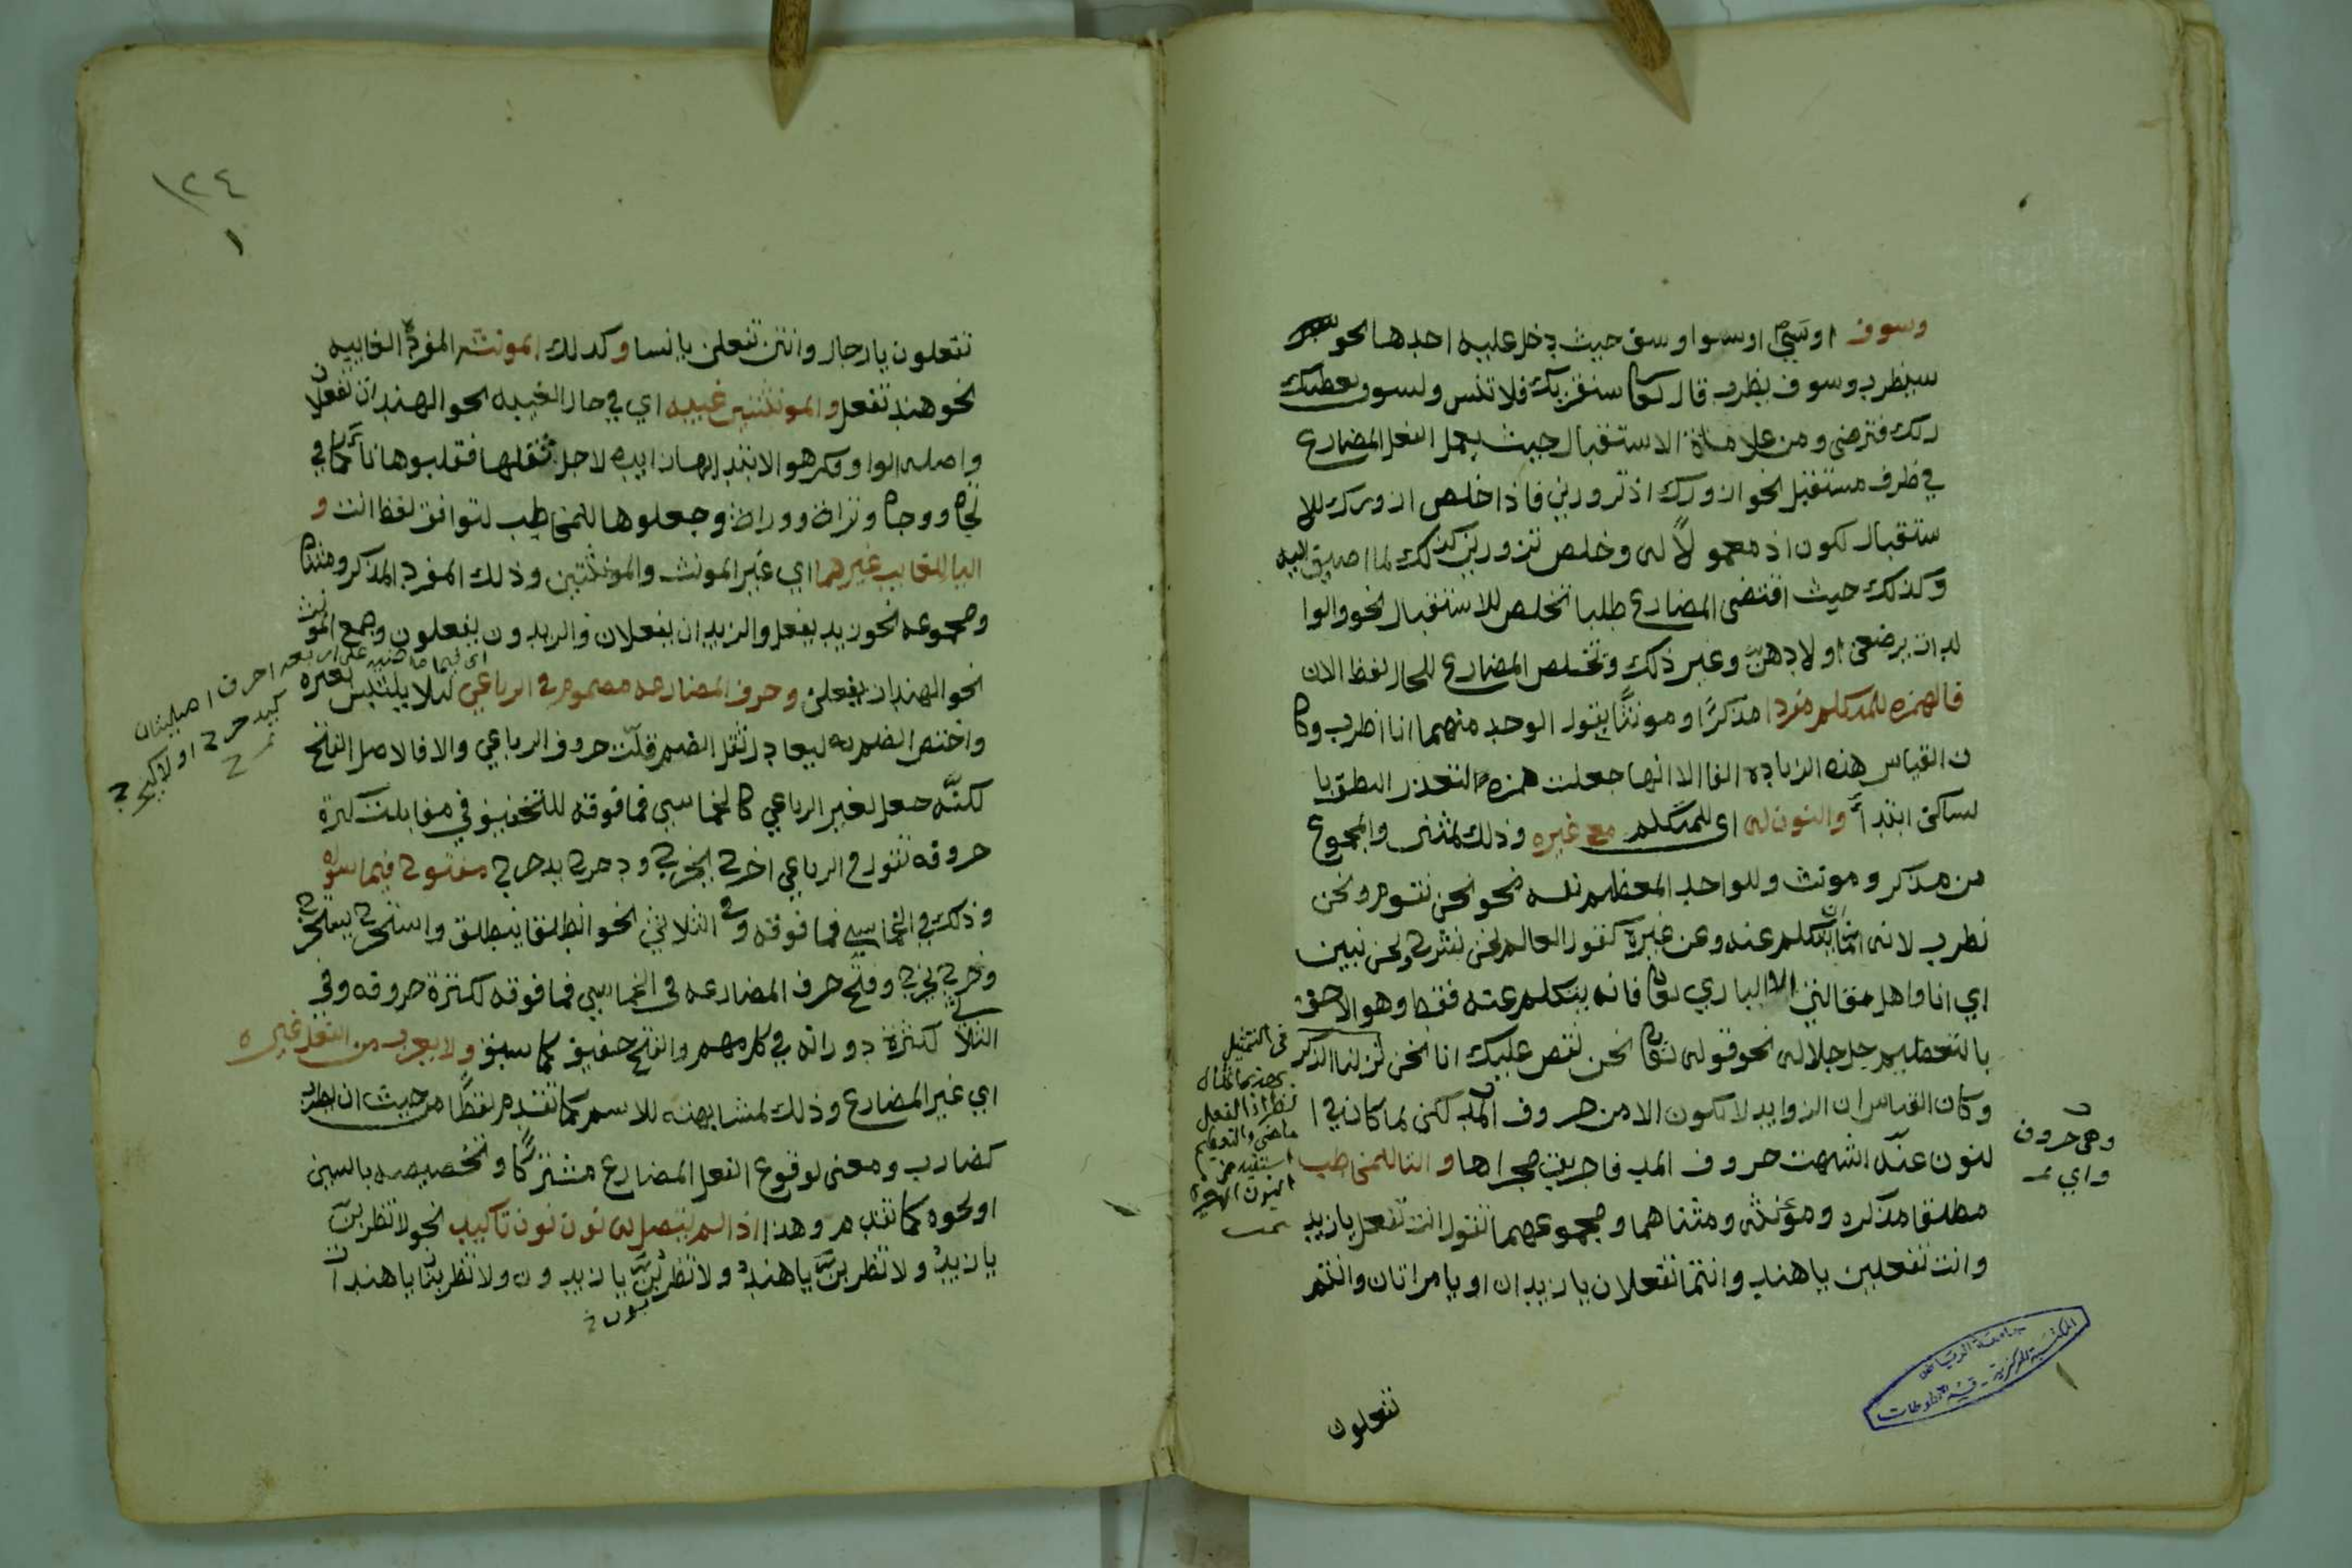 وسوف اوسي اوسوا وسف حيث دخل عليه احدها نحو
سيضرب وسوف يضرب قال تعالى سنقريك فلا تنسى ولسوف يعطيك
ربك فترضى ومن علاماة الاستقبال حيث يعمل الفعل المضارع
في ظرف مستقبل نحو ازورك اذ تزورني فاذا خلص ازورك للا
ستقبال لكون اذ معمولاً له وخلص تزورني كذلك لما اضيق اليه
وكذلك حيث اقتضى المضارع طلبا تخلص للاستقبال نحو والوا
لدات يرضعن اولادهن وغير ذلك وتخلص المضارع للحال لفظ الان
فالهمزه للمتكلم مفردا مذكرًا او مونثًا يقول الوحد منهما انا اضرب وكا
ن القياس هذه الزياده الفا الا انها جعلت همزه لتعذر النطق با
لساكن ابتدأ والنون له اي للمتكلم مع غيره وذلك لمثنى والمجموع
من مذكر ومونث وللواحد المعظم نفسه نحو نحن نقوم ونحن
نضرب لانه انما يتكلم عنه وعن غيره كقول العالم نحن نشرح ونحن نبين
اي انا واهل مقالتي الا الباري تعالى فانه يتكلم عنه فقط وهو الاحق
بالتعظيم جل جلاله نحو قوله تعالى نحن نقص عليك انا نحن نزلنا الذكر
وكان القياس ان الزوايد لا تكون الا من حروف المد لكن لما كان في ا
لنون غنّه اشبهت حروف المد فاجريت مجراها والتا للمخاطب
مطلقا مذكره ومؤنثه ومثناهما ومجموعهما تقول انت تفعل يا زيد
وانت تفعلين يا هند وانتما تفعلان يا زيدان او يا مراتان وانتم
في التمثيل
نظرا اذ الفعل
ماضي والتعظيم
وهي حروف
واي
تفعلون
جامعة الرياض
المكتبة المركزية - قسم المخطوطات
١٢٤
١
تفعلون يا رجال وانتن تفعلن يا نسا وكذلك المونث المفرد الغايبه
نحو هند تفعل والمونثتين غيبه اي في حال الغيبه نحو الهندان تفعلان
واصله الواو وكرهو الابتدا بها زايده لاجل ثقلها فقلبوها تاً كما في
تجاه ووجاه وتراث ووراث وجعلوها للمخاطب لتوافق لفظ انت و
اليا للغايب غيرهما اي غير المونث والمونثتين وذلك المفرد المذكر ومثناه
ومجموعه نحو زيد يفعل والزيدان يفعلان والزيدون يفعلون وجمع المونث
نحو الهندات يفعلن وحرف المضارعه مضموم في الرباعي لئلا يلتبس بغيره
واختص الضم به ليعادل ثقل الضم قلّت حروف الرباعي والا فالاصل الفتح
لكنّه جعل لغير الرباعي كالخماسي فما فوقه للتخفيف في مقابلت كثرة
حروفه تقول في الرباعي اخرج يخرج ودحرج يدحرج مفتوح فيما سواه
وذلك في الخماسي فما فوقه وفي الثلاثي نحو انطلق ينطلق واستخرج يستخرج
وخرج يخرج وفتح حرف المضارعه في الخماسي فما فوقه لكثرة حروفه وفي
الثلاثي كثرة دورانه في كلامهم والفتح خفيف كما سبق ولا يعرب من الفعل غيره
اي غير المضارع وذلك لمشابهته للاسم كما تقدم لفظًا من حيث ان يضرب
كضارب ومعنى لوقوع الفعل المضارع مشتركًا وتخصيصه بالسين
او نحوه كما تقدم وهذا اذا لم يتصل به نون نون تاكيد نحو لا تضربن
يا زيد ولا تضربن يا هند ولا تضربن يا زيدون ولا تضربنان يا هندات
اي فيما ماضيه على اربعه احرف اصليتان
كيدحرج او لا كيخرج